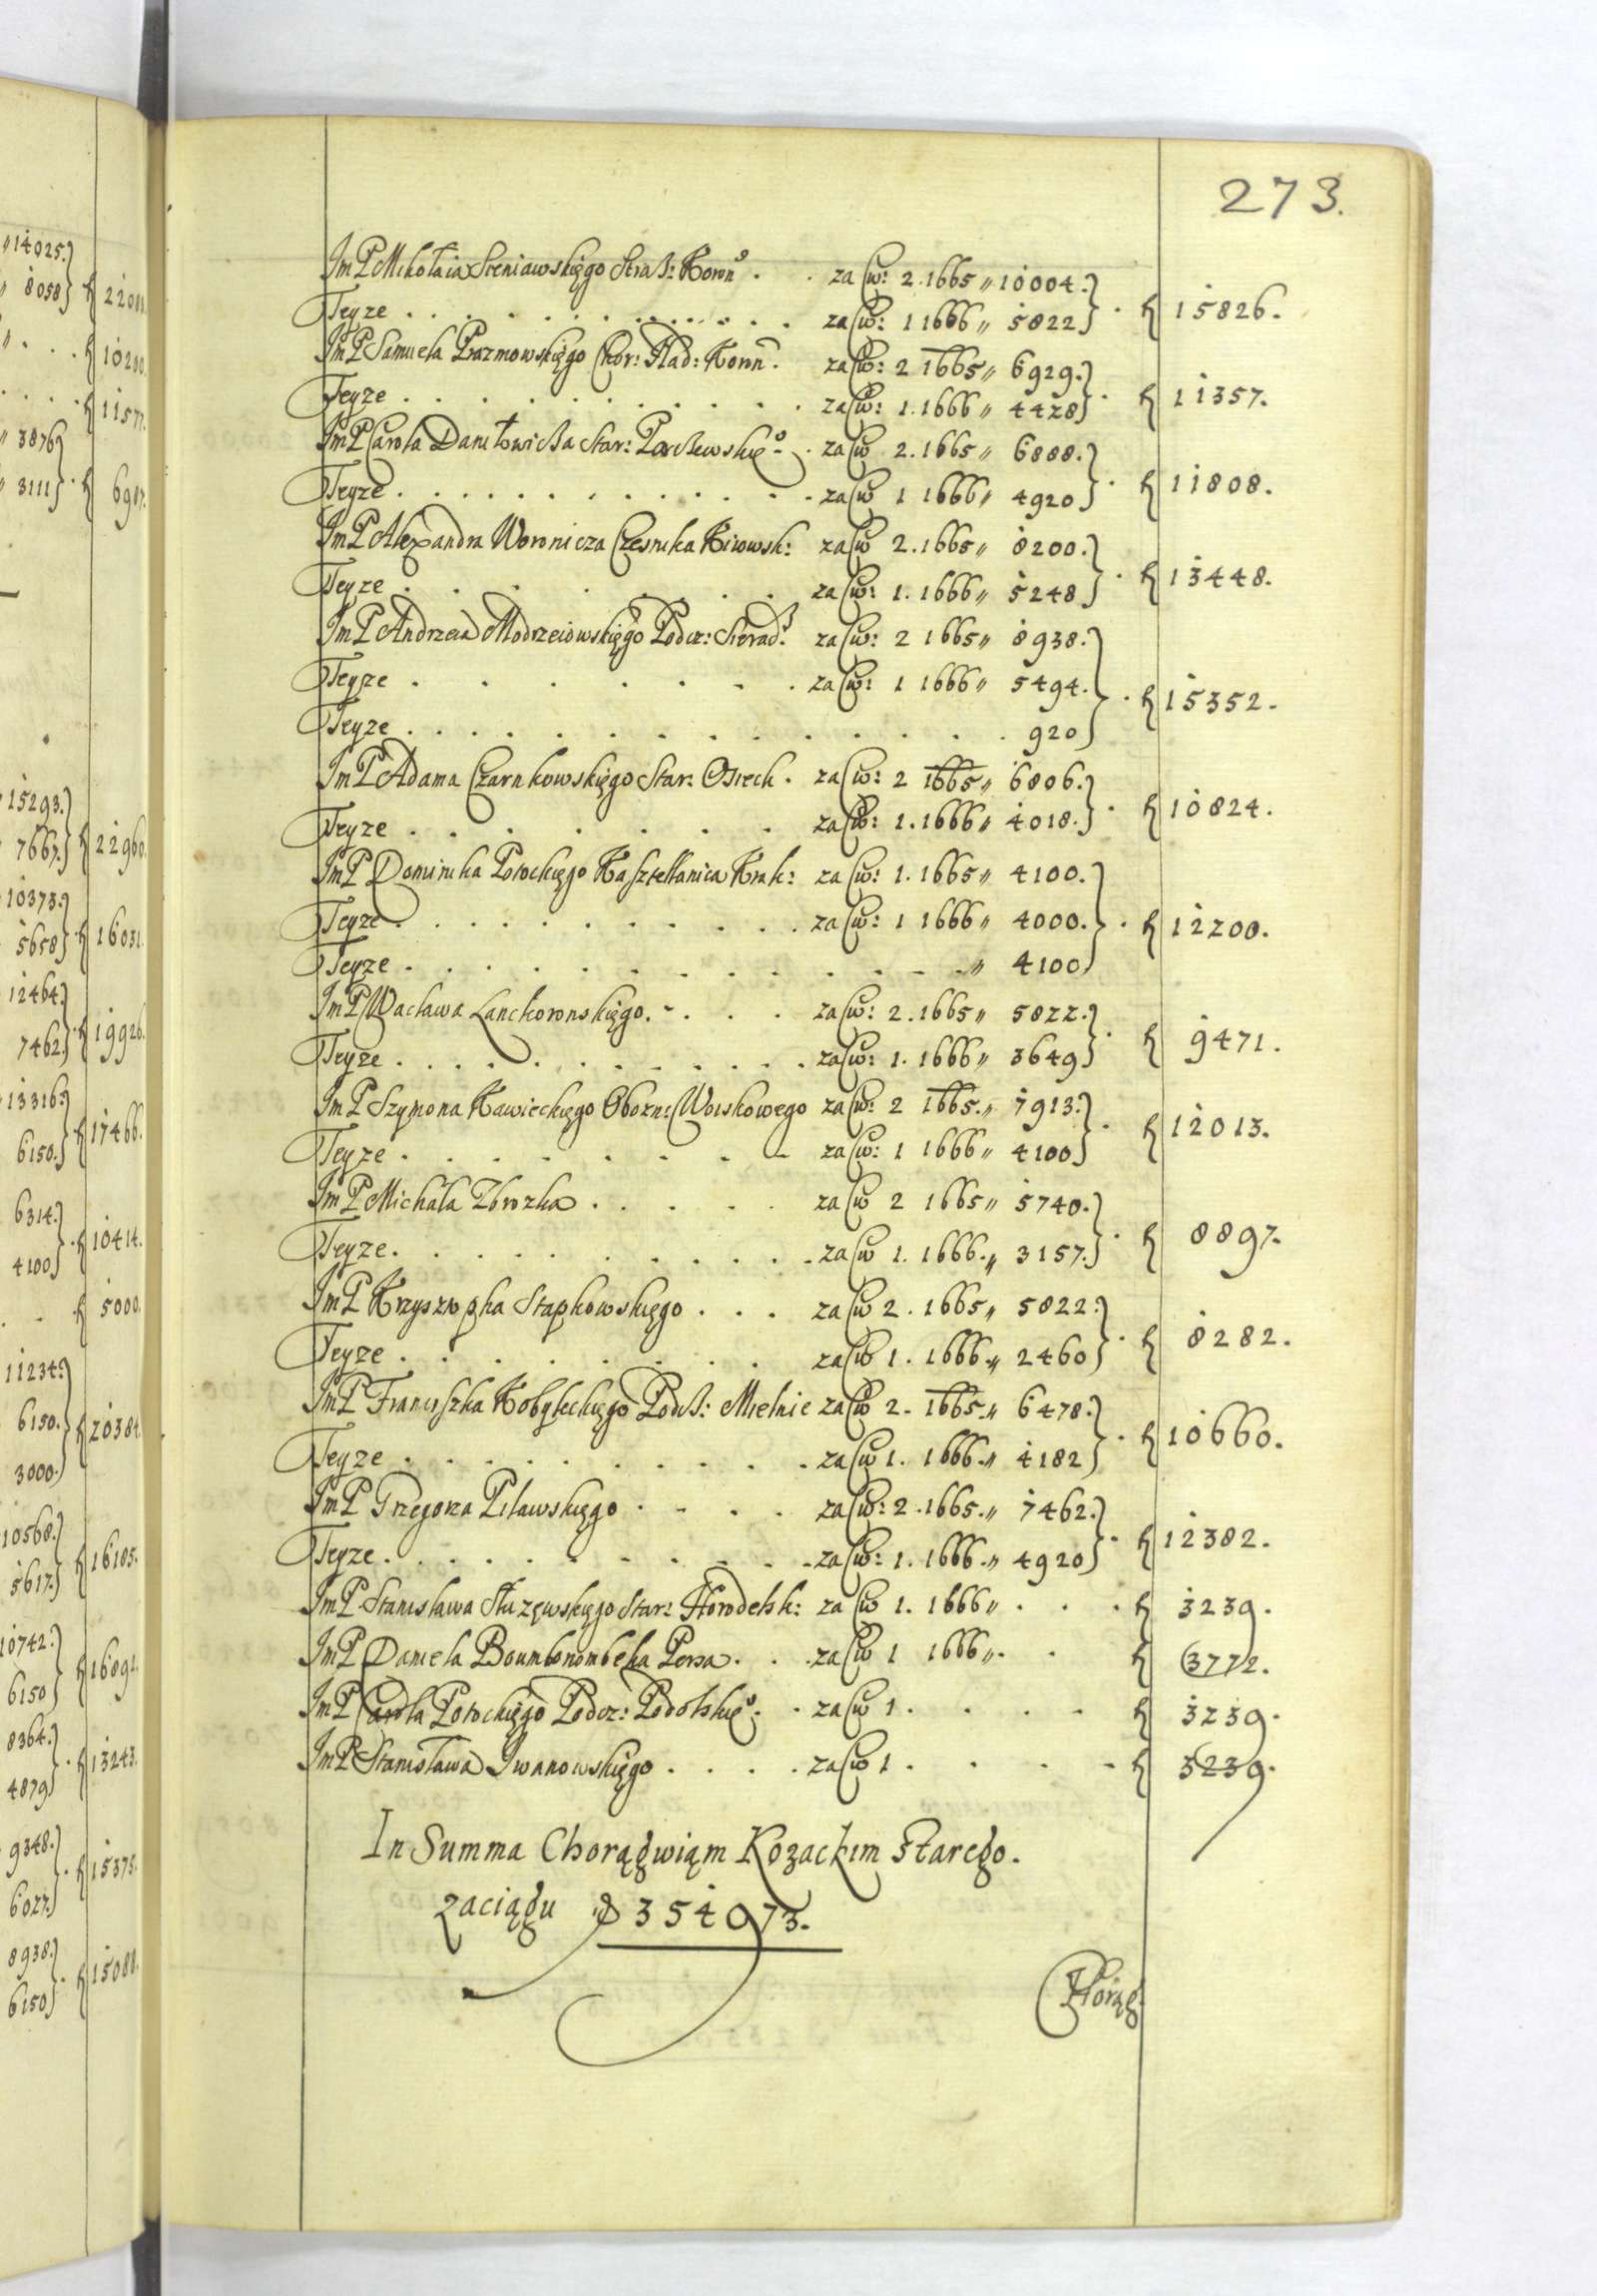 273.
ImP Mikołaia Sieniawskięgo Straß: Koron° . . za Cw: 2. 1665 " 10004. } . ꝶ 15826.
Teyze . . . . . . . . . . . . za Cw: 1 1666 " 5822 }
ImP Samuela Prazmowskięgo Chor: Nad: Koron. za Cw: 2 1665 " 6929. } . ꝶ 11357.
Teyze . . . . . . . . . . . . za Cw: 1. 1666 " 4428 }
ImP Carola Daniłowicza Star: Parczewskię° . . za Cw 2. 1665 " 6888. } . ꝶ 11808.
Teyze . . . . . . . . . . . . za Cw 1 1666 " 4920 }
ImP Alexandra Woronicza Czesnika Kiiowsk: za Cw 2. 1665 " 8200. } . ꝶ 13448.
Teyze . . . . . . . . za Cw: 1. 1666 " 5248 }
ImP Andrzeia Modrzeiowskięgo Podcz: Sierad. za Cw: 2 1665 " 8938. }
Teyze . . . . . . . . za Cw: 1 1666 " 5494. } . ꝶ 15352.
Teyze . . . . . . . . . . . . . 920 }
ImP Adama Czarnkowskięgo Star: Osieck . za Cw: 2 1665 " 6806. } . ꝶ 10824.
Teyze . . . . . . . za Cw: 1. 1666 " 4018. }
ImP Dominika Potockięgo Kasztellanica Krak: za Cw: 1. 1665 " 4100. }
Teyze . . . . . . . . . . za Cw: 1 1666 " 4000. } . ꝶ 12200.
Teyze . . . . . . . . . . . . . " 4100 }
ImP Wacława Lanckoronskięgo . - . . . za Cw: 2. 1665 " 5822. } . ꝶ 9471.
Teyze . . . . . . . . . . . za Cw: 1. 1666 " 3649 }
ImP Szymona Kawieckięgo Obozne Woiskowego za Cw: 2 1665. " 7913. } . ꝶ 12013.
Teyze . . . . . . . . - za Cw: 1 1666 " 4100 }
ImP Michała Zbrozka . . . . . za Cw 2 1665 " 5740. } . ꝶ 8897.
Teyze . . . . . . . . . . za Cw 1. 1666. " 3157. }
ImP Krzysztopha Stapkowskięgo . . . za Cw 2. 1665 " 5822. } . ꝶ 8282.
Teyze . . . . . . . . . za Cw 1. 1666. " 2460 }
ImP Franciszka Kobyłeckięgo Podß: Mielnic za Cw 2. 1665. " 6478. } . ꝶ 10660.
Teyze . . . . . . . . . . za Cw 1. 1666. " 4182 }
ImP Grzegorza Pilawskięgo . . . . za Cw: 2. 1665. " 7462. } . ꝶ 12382.
Teyze . . . . . . . . . . za Cw: 1. 1666. " 4920 }
ImP Stanisława Słuzewskięgo Star: Horodelsk: za Cw 1. 1666 " . . . ꝶ 3239.
ImP Daniela Boumbonombeka Persa . . . za Cw 1 1666 " . . ꝶ 3772.
ImP Carola Potockięgo Podcz: Podolskię° . . za Cw 1 . . . . ꝶ 3239.
ImP Stanisława Iwanowskięgo . . . . za Cw 1 . . . . ꝶ 3239.
In Summa Chorągwiąm Kozackim starego.
zaciągu ꝶ 354973.
Chorąg
"14025. }
" 8058 } ꝶ 2208
" . . . ꝶ 10200.
. . . . ꝶ 11577.
" 3876 }
" 3111 } . ꝶ 6987.
15293. }
7667. } ꝶ 22960.
10373. }
5658 } . ꝶ 16031.
12464. }
7462. } . ꝶ 19926.
13316. }
6150. } . ꝶ 17466.
6314. }
4100 } . ꝶ 10414.
. . ꝶ 5000.
11234. }
6150. } ꝶ 20384.
3000. }
10568. }
5617. } ꝶ 16185.
10742. }
6150 } ꝶ 16892.
8364. }
4879 } . ꝶ 13243.
9348. }
6027. } . ꝶ 15375.
8938. }
6150 } . ꝶ 15088.